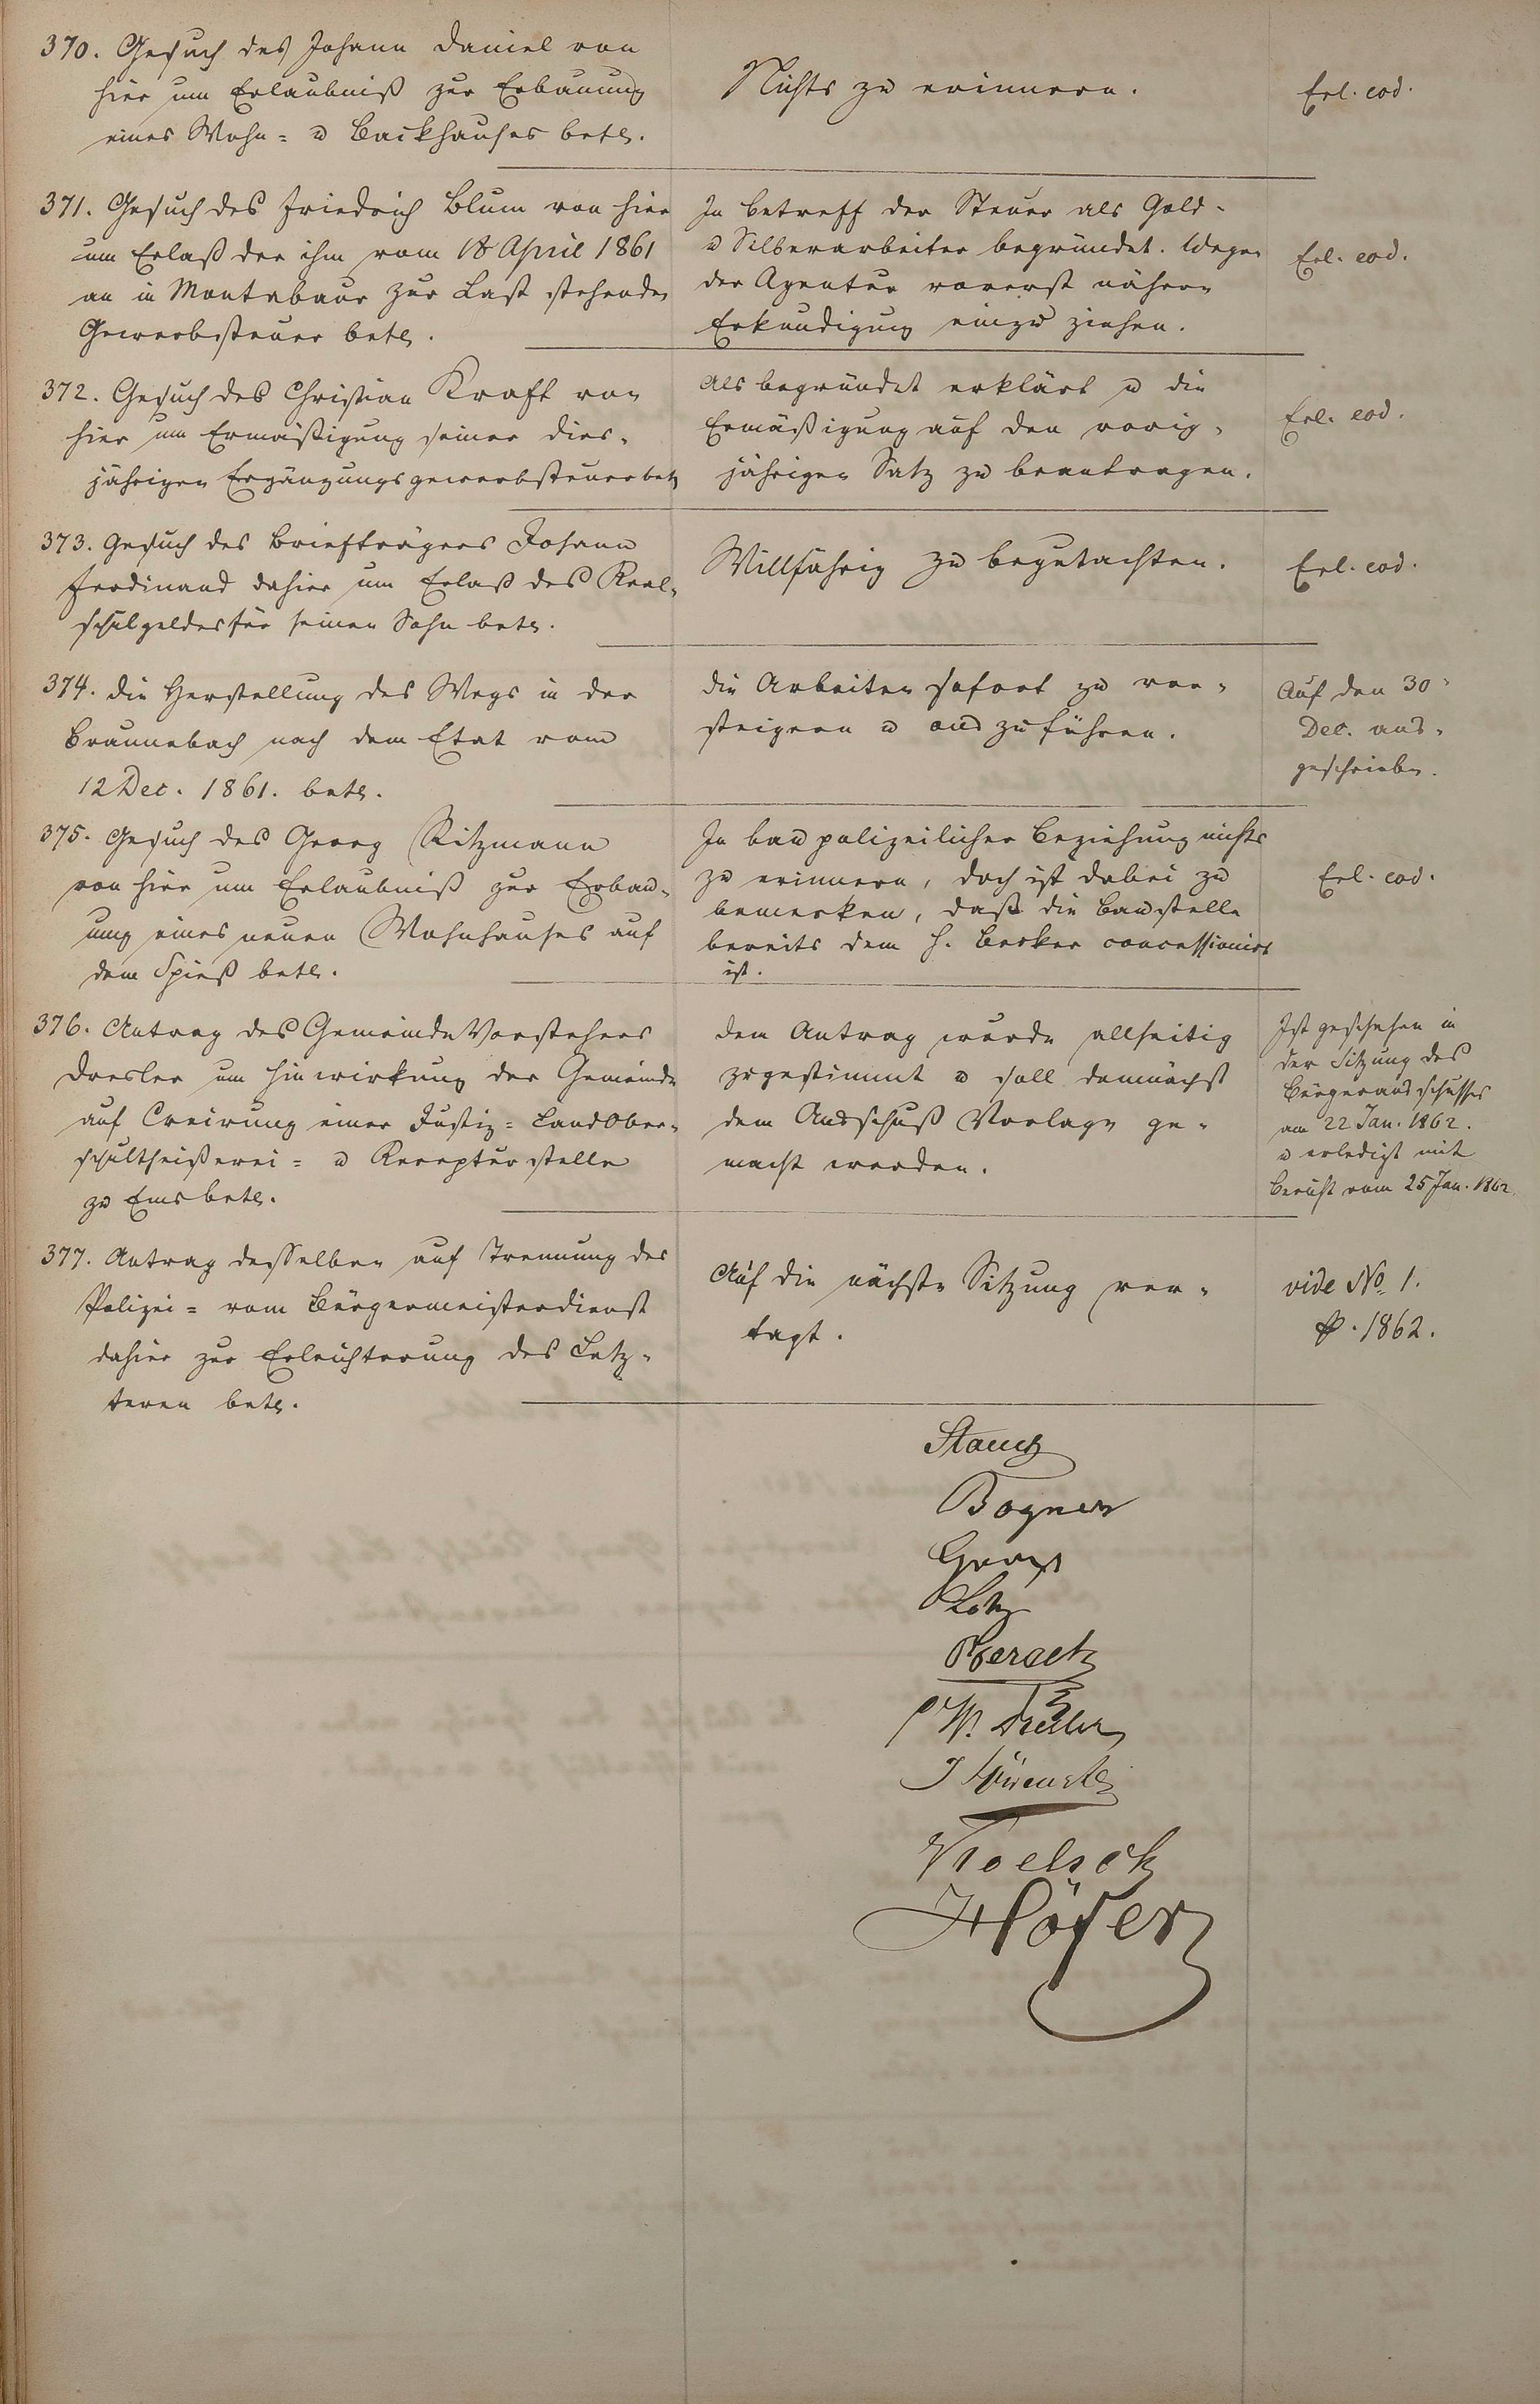 370. Gesuch des Johann Daniel von
hier um Erlaubniß zur Erbauung
eines Wohn= u Backhauses betr.
Nichts zu erinnern.
Erl. eod.
371. Gesuch des Friedrich Blum von hier
um Erlaß der ihm vom April 1861
an in Montabaur zur Last stehenden
Gewerbsteuer betr.
In betreff der Steuer als Gold-
u Silberarbeiter begründet. Wegen
der Agentur vorerst nähere
Erkundigung einzu ziehen.
Erl. eod.
372. Gesuch des Christian Kraft von
hier um Ermäßigung seiner dies-
jährigen Ergänzungsgewerbsteuer betr
Als begründet erklärt u die
Ermäßigung auf den vorig-
jährigen Satz zu beantragen.
Erl. eod.
373. Gesuch des Briefträgers Johann
Ferdinand dahier um Erlaß des Real-
schulgeldes für seinen Sohn betr.
Willfährig zu begutachten.
Erl. eod.
374. Die Herstellung des Wegs in der
Braunebach nach dem Etat vom
12 Dec. 1861. betr.
Die Arbeiten sofort zu ver-
steigern u auszuführen.
Auf den 30
Dec. aus-
geschrieben.
375. Gesuch des Georg Ritzmann
von hier um Erlaubniß zur Erbau-
ung eines neuen Wohnhauses auf
dem Spieß betr.
In baupolizeilicher Beziehung nichts
zu erinnern, doch ist dabei zu
bemerken, daß die Baustelle
bereits dem H. Becker concessionirt
ist.
Erl. eod.
376. Antrag des Gemeinde Vorstehers
Dresler um Hinwirkung der Gemeinde
auf Creirung einer Justiz= LandOber-
schultheißerei= u Recepturstelle
zu Ems betr.
Dem Antrag wurde allseitig
zugestimmt u soll demnächst
dem Ausschuß Vorlage ge-
macht werden.
Ist geschehen in
der Sitzung des
Bürgerausschusses
am 22 Jan. 1862.
u erledigt mit
Bericht vom 25 Jan. 1862.
377. Antrag desselben auf Trennung des
Polizei= vom Bürgermeisterdienst
dahier zur Erleichterung des Letz-
teren betr.
Auf die nächste Sitzung ver-
tagt.
vide No. 1.
p. 1862.
Stauch
Bogner
Lotz
W. Dresler
Höfer